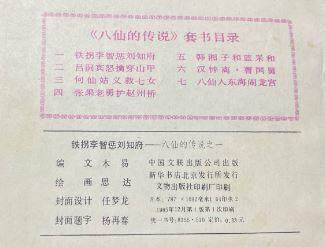 《八仙的传说》套书目录
一 铁拐李智惩刘知府
二 吕洞宾怒擒穿山甲
三 何仙姑义救七女
四 张果老勇护赵州桥
五 韩湘子和蓝采和
六 汉钟离·曹国舅
七 八仙入东海闹龙宫
铁拐李智惩刘知府——八仙的传说之一
编 文 木易
绘 画 思达
封面设计 任梦龙
封面题字 杨再春
中国文联出版公司出版
新华书店北京发行所发行
文物出版社印刷厂印刷
开本:787×1092毫米1/64印张2
1985年12月第1版第1次印刷